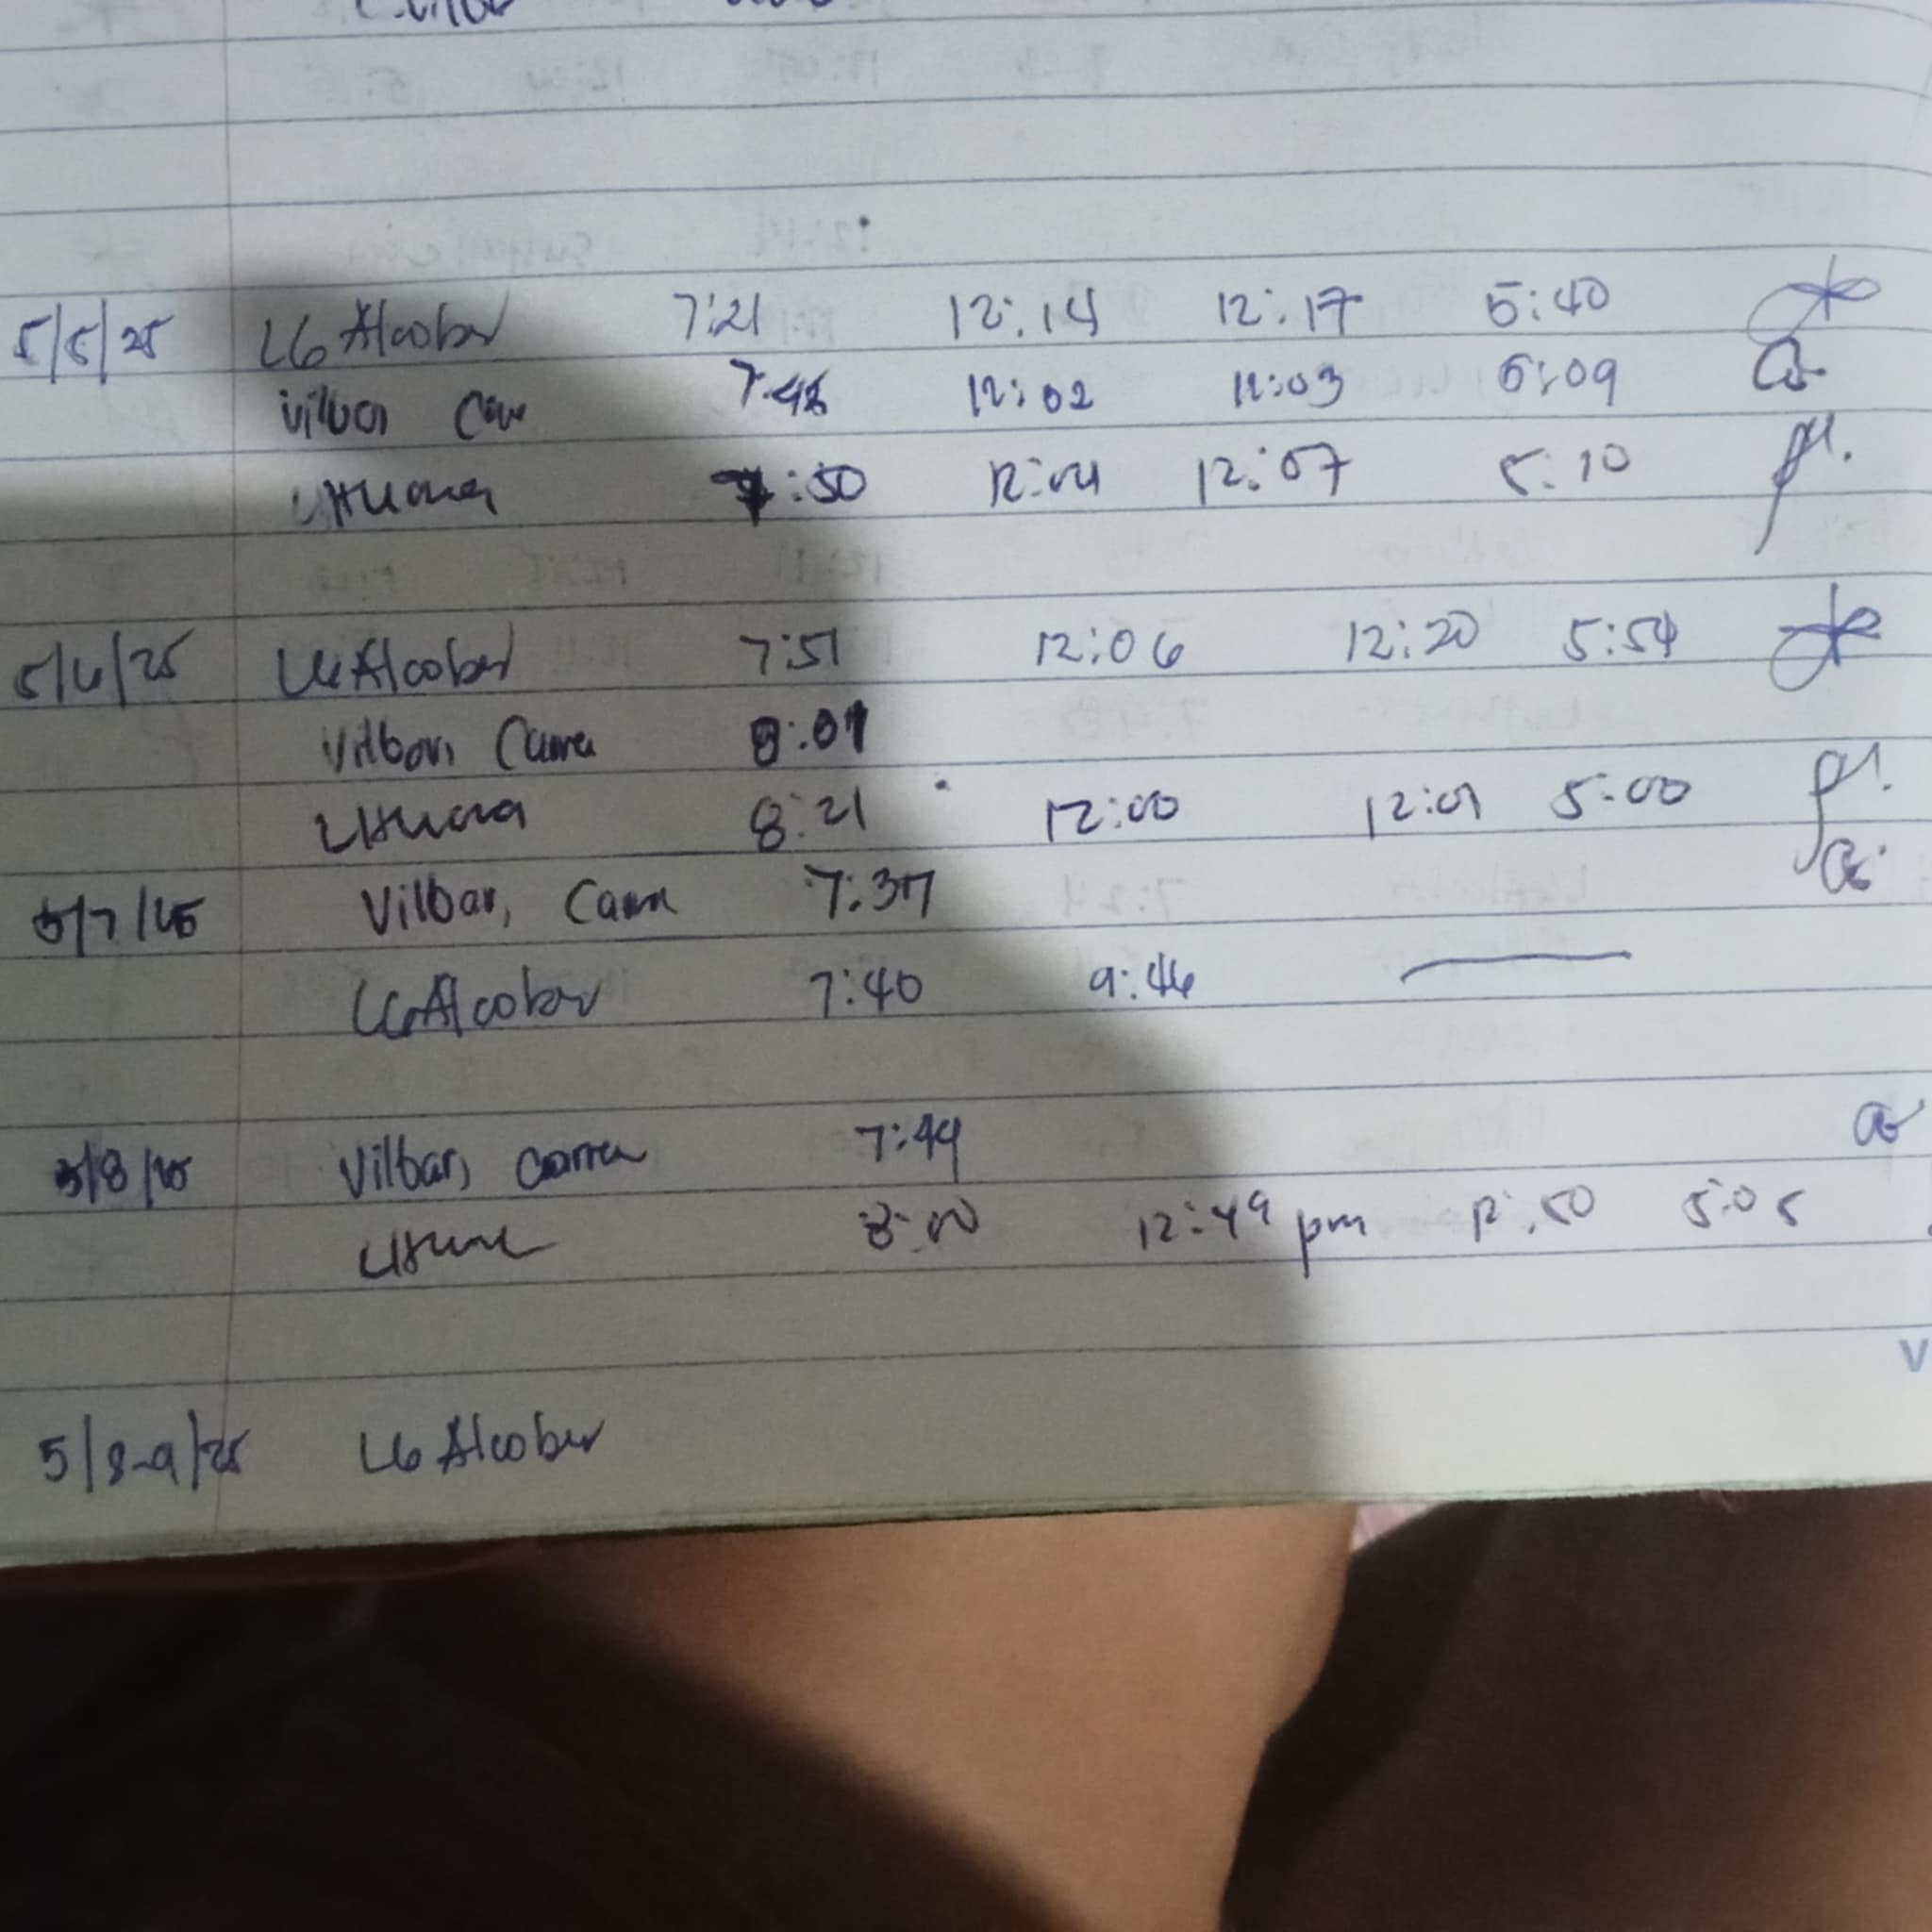 5/5/25 LG Alcober 7:21 12:14 12:17 5:40
Vilbar 7:48 12:02 12:03 5:09
7:50 12:04 12:07 5:10
5/6/25 LG Alcober 7:51 12:06 12:20 5:54
Vilbar, Carra 8:01
8:21 12:00 12:01 5:00
5/7/25 Vilbar, Carra 7:37
LG Alcober 7:40 9:46
5/8/25 Vilbar, Carra 7:49
8:00 12:49 pm 12:50 5:05
5/8-9/25 LG Alcober